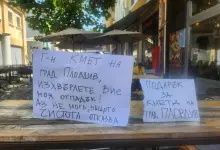 Г-Н КМЕТ НА
ГРАД ПЛОВДИВ,
ИЗХВЪРЛЕТЕ ВИЕ
МОЯ ОТПАДЪК!
АЗ НЕ МОГА, ЗАЩОТО
ЧИСТОТА ОТКАЗА
ПОДАРЪК
ЗА
КМЕТА НА
ГРАД ПЛОВДИВ